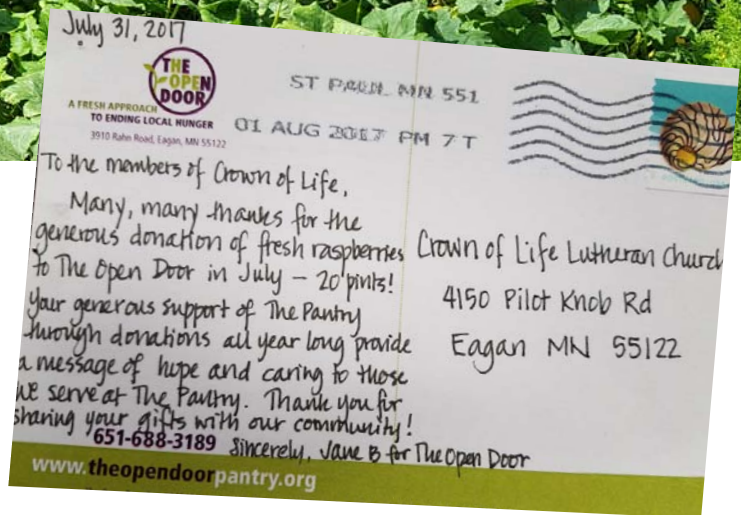 July 31, 2017
THE
OPEN
DOOR
A FRESH APPROACH
TO ENDING LOCAL HUNGER
3910 Rahn Road, Eagan, MN 55122
ST PAUL MN 551
01 AUG 2017 PM 7 T
To the members of Crown of Life,
Many, many thanks for the
generous donation of fresh raspberries
to The Open Door in July – 20 pints!
Your generous support of The Pantry
through donations all year long provide
a message of hope and caring to those
we serve at The Pantry. Thank you for
sharing your gifts with our community!
651-688-3189
Sincerely, Jane B for The Open Door
www.theopendoorpantry.org
Crown of Life Lutheran Church
4150 Pilot Knob Rd
Eagan MN 55122